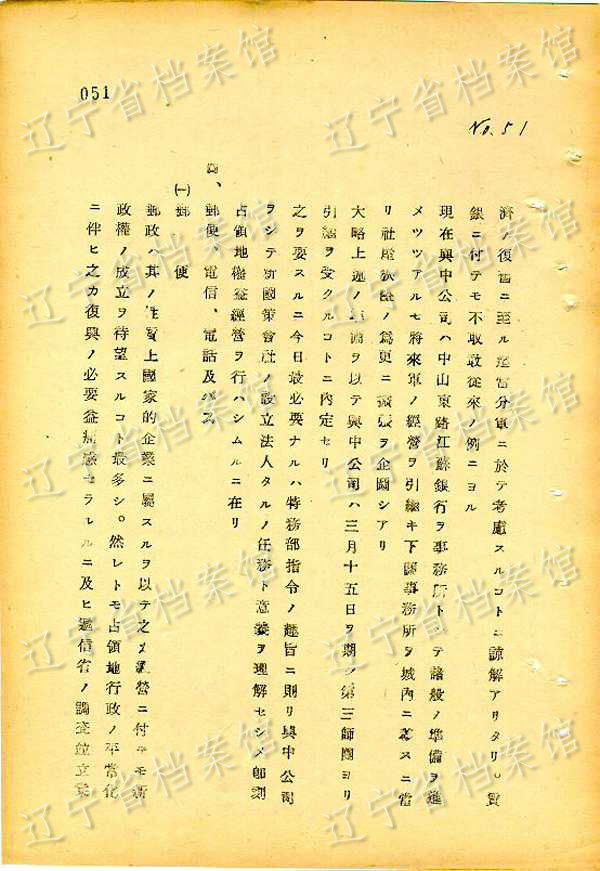 051
No. 51
濟ノ復舊ニ至ル迄當分軍ニ於テ考慮スルコトニ諒解アリタリ。賃
銀ニ付テモ不取敢從來ノ例ニヨル
現在興中公司ハ中山東路江蘇銀行ヲ事務所トシテ諸般ノ準備ヲ進
メツツアルモ將來軍ノ經營ヲ引繼キ下關事務所ヲ城內ニ移スニ當
リ社屋ノ爲更ニ擴張ヲ企圖シアリ
大略上述ノ準備ヲ以テ興中公司ハ三月十五日ヲ期シ第三師團ヨリ
引繼ヲ受クルコトニ內定セリ
之ヲ要スルニ今日最必要ナルハ特務部指令ノ趣旨ニ則リ興中公司
ヲシテ新國策會社ノ設立法人タルノ任務ト意義ヲ理解セシメ卽刻
占領地權益經營ヲ行ハシムルニ在リ
、郵便、電信、電話及バス
㈠郵便
郵政ハ其ノ性質上國家的企業ニ屬スルヲ以テ之カ經營ニ付テモ新
政權ノ成立ヲ待望スルコト最多シ。然レトモ占領地行政ノ平常化
ニ伴ヒ之カ復興ノ必要益痛感セラレルニ及ヒ遞信省ノ調査竝立案
辽宁省档案馆
辽宁省档案馆
辽宁省档案馆
辽宁省档案馆
辽宁省档案馆
辽宁省档案馆
辽宁省档案馆
辽宁省档案馆